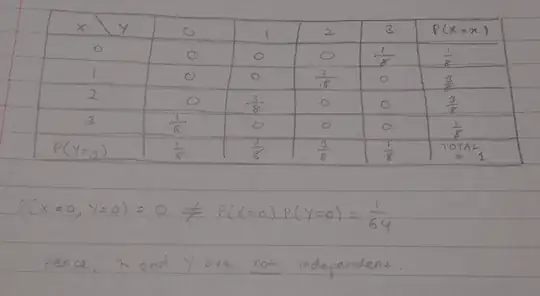 X \ Y 0 1 2 3 P(X=x)
0 0 0 0 1/8 1/8
1 0 0 3/8 0 3/8
2 0 3/8 0 0 3/8
3 1/8 0 0 0 1/8
P(Y=y) 1/8 3/8 3/8 1/8 TOTAL = 1
P(X=0, Y=0) = 0 ≠ P(X=0) P(Y=0) = 1/64
Hence, X and Y are not independent.